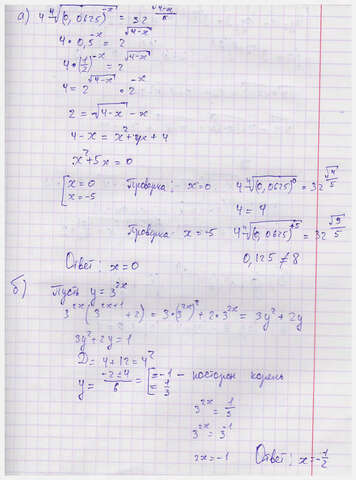 а) 4 ⁴√(0,0625)^-x = 32^(√(4-x)/5)
4 • 0,5^-x = 2^√(4-x)
4 • (1/2)^-x = 2^√(4-x)
4 = 2^√(4-x) • 2^-x
2 = √(4-x) - x
4 - x = x² + 4x + 4
x² + 5x = 0
[x = 0 Проверка: x=0 4 ⁴√(0,0625)^0 = 32^(√4/5)
x = -5
4 = 4
Проверка x = -5 4 ⁴√(0,0625)^+5 = 32^(√9/5)
0,125 ≠ 8
Ответ: x = 0
б) Пусть y = 3^2x
3^2x (3^(2x+1) + 2) = 3 • (3^2x)² + 2 • 3^2x = 3y² + 2y
3y² + 2y = 1
D = 4 + 12 = 4²
y = (-2 ± 4)/6 = [= -1 - посторон корень
= 1/3
3^2x = 1/3
3^2x = 3^-1
2x = -1 Ответ: x = -1/2